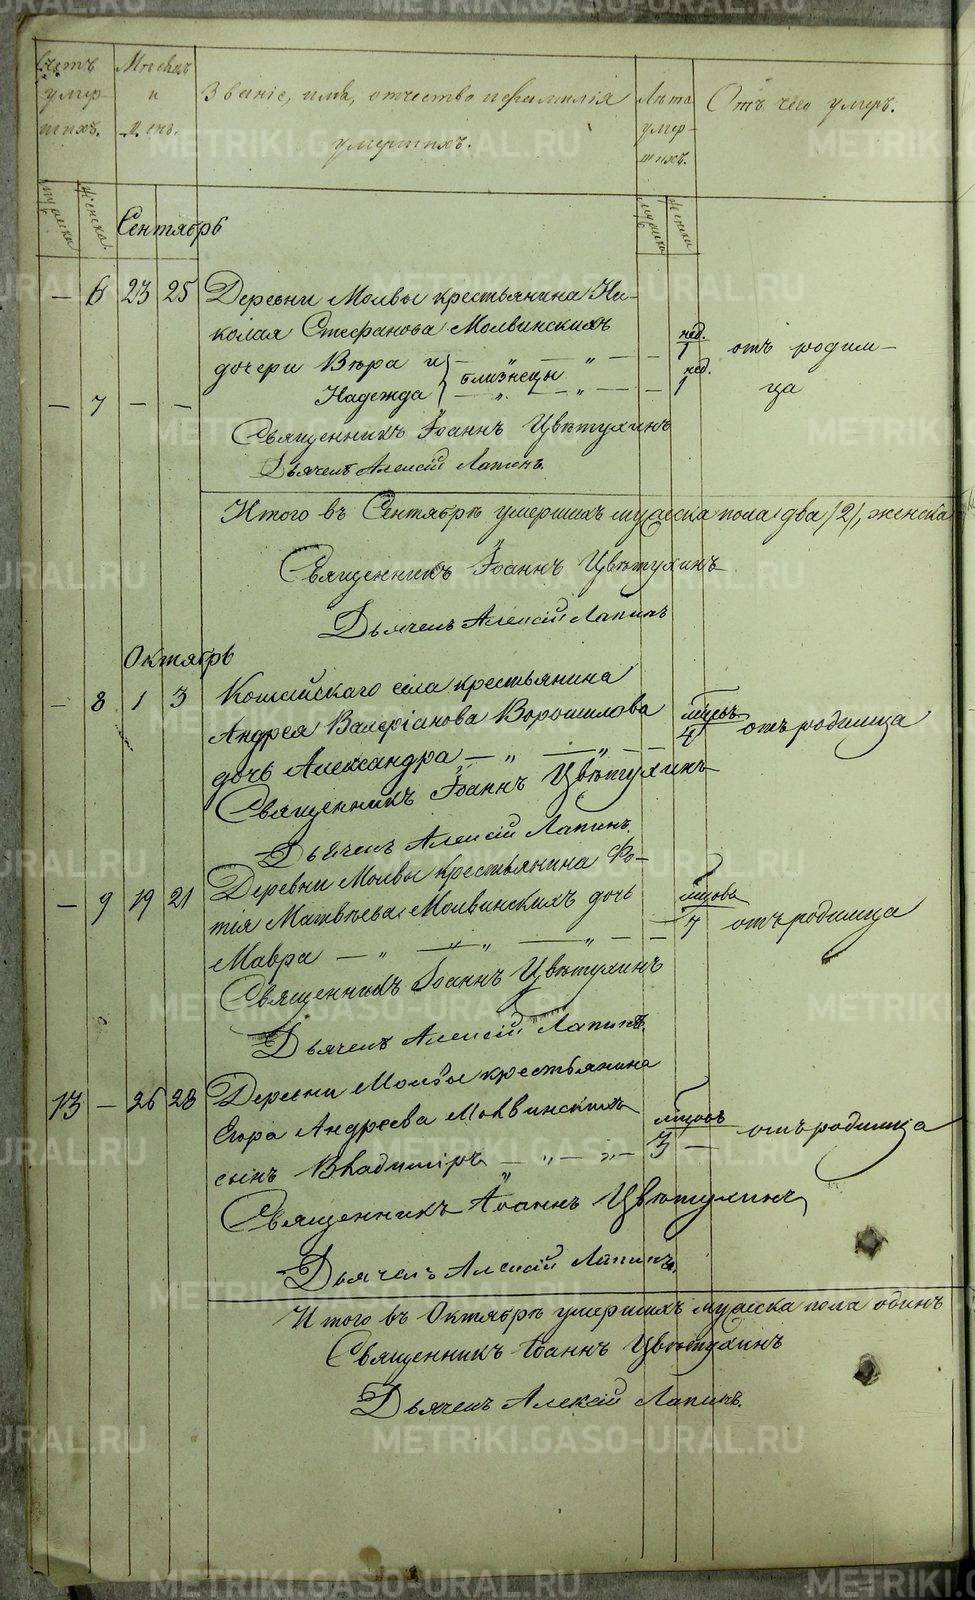 Счетъ умер- шихъ.
Мѣсяцъ и день.
Званіе, имя, отчество и фамилія умершихъ.
Лѣта умер- шихъ.
Отъ чего умеръ.
мужска женска
мужска женска
Сентябрь
— 6 23 25 Деревни Молвы крестьянина Ни-
колая Стефанова Молвинскихъ
дочери Вѣра и — „ — „ — — нед. 1 отъ родим-
близнецы
— 7 — — Надежда — „ — „ — — нед. 1 ца
Священникъ Іоаннъ Цвѣтухинъ
Дьячекъ Алексій Лапинъ.
Итого въ Сентябрѣ умершихъ мужска пола два /2/, женска
Священникъ Іоаннъ Цвѣтухинъ
Дьячекъ Алексій Лапинъ
Октябрь
— 8 1 3 Кошайскаго села крестьянина
Андрея Валеріанова Ворошилова мѣсцъ
дочь Александра — „ — „ — — 4 отъ родимца
Священникъ Іоаннъ Цвѣтухинъ
Дьячекъ Алексій Лапинъ.
— 9 19 21 Деревни Молвы крестьянина Фо-
тія Матвѣева Молвинскихъ дочь мцовъ
Мавра — „ — „ — „ — — 7 отъ родимца
Священникъ Іоаннъ Цвѣтухинъ
Дьячекъ Алексій Лапинъ.
13 — 26 28 Деревни Молвы крестьянина
Егора Андреева Молвинскихъ мцовъ
сынъ Владиміръ — „ — „ — 3 — отъ родимца
Священникъ Іоаннъ Цвѣтухинъ
Дьячекъ Алексій Лапинъ.
Итого въ Октябрѣ умершихъ мужска пола одинъ
Священникъ Іоаннъ Цвѣтухинъ
Дьячекъ Алексій Лапинъ.
METRIKI.GASO-URAL.RU